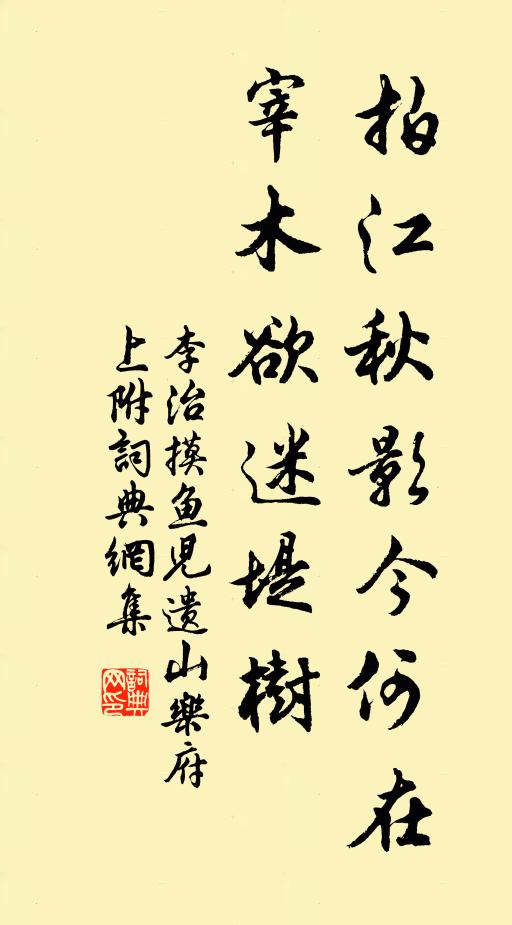 拍江秋影今何在
宰木欲迷堤樹
李治摸鱼児遗山樂府
上附詞典網集
詞典
网印